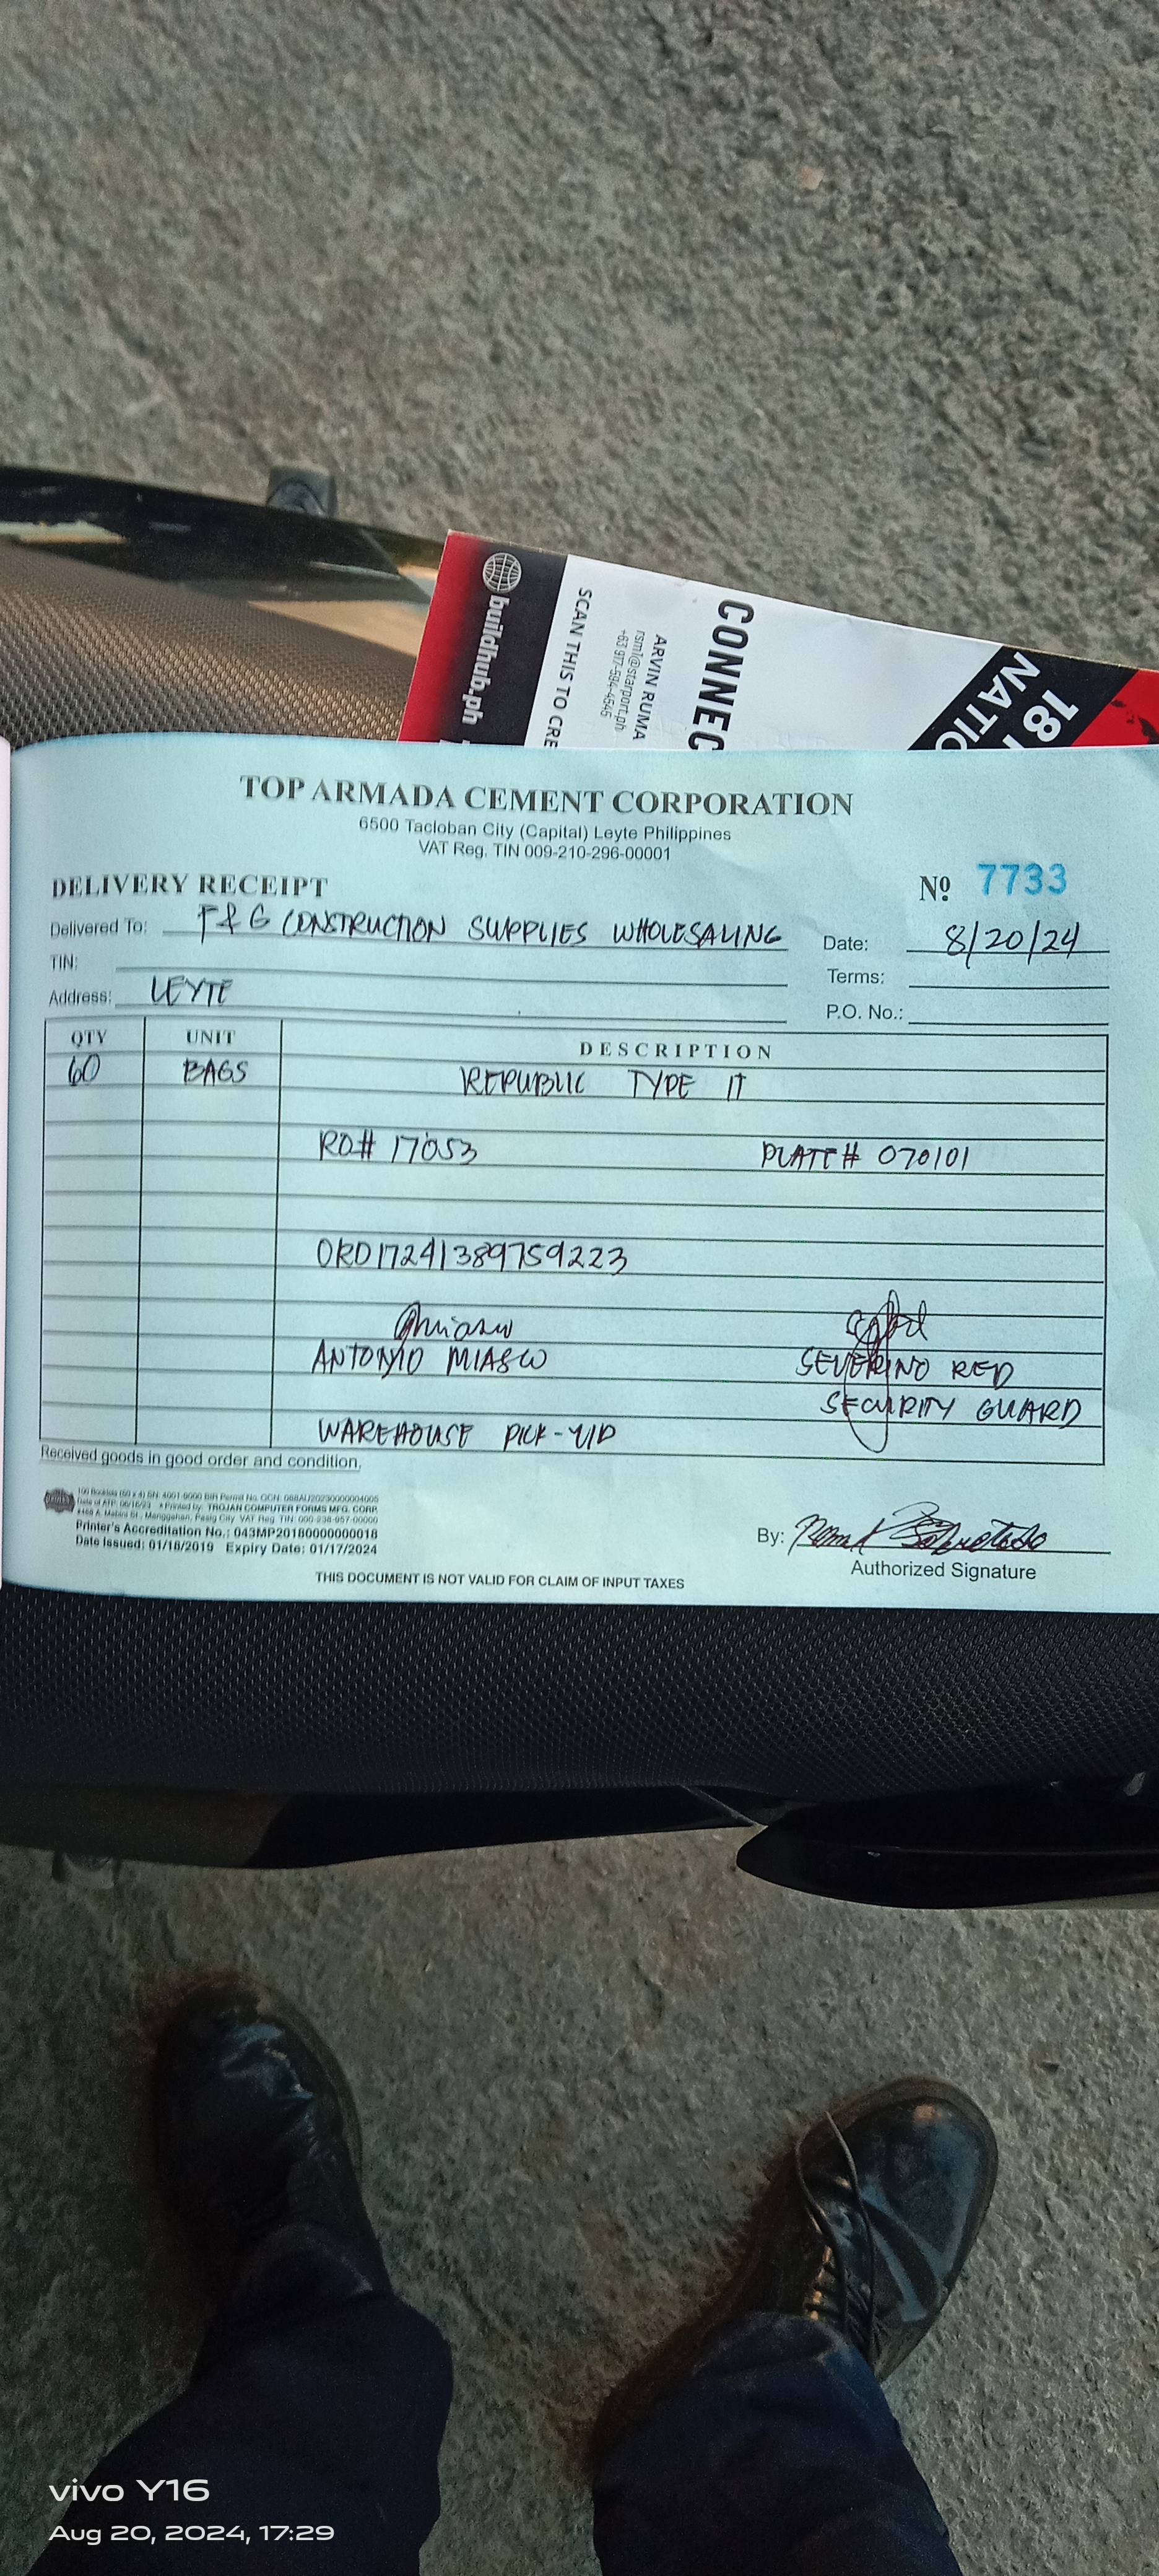 buildhub.ph
SCAN THIS TO CRE
ARVIN RUMA
rsm1@starport.ph
+63 917-594-4545
CONNEC
18
NATIO
TOP ARMADA CEMENT CORPORATION
6500 Tacloban City (Capital) Leyte Philippines
VAT Reg. TIN 009-210-296-00001
DELIVERY RECEIPT Nº 7733
Delivered To: F&G CONSTRUCTION SUPPLIES WHOLESALING Date: 8/20/24
TIN: Terms:
Address: LEYTE P.O. No.:
QTY UNIT DESCRIPTION
60 BAGS REPUBLIC TYPE 1T
RO# 17053 PLATE# 070101
ORD17241389759223
ANTONIO MIASCO SEVERINO RED
SECURITY GUARD
WAREHOUSE PICK-UP
Received goods in good order and condition.
100 Booklets (50 x 4) SN: 4001-9000 BIR Permit No. OCN: 088AU20230000004005
Date of ATP: 06/16/23 Printed by: TROJAN COMPUTER FORMS MFG. CORP.
#168 A. Mabini St., Manggahan, Pasig City VAT Reg. TIN: 000-238-957-00000
Printer's Accreditation No.: 043MP20180000000018
Date Issued: 01/18/2019 Expiry Date: 01/17/2024
By:
Authorized Signature
THIS DOCUMENT IS NOT VALID FOR CLAIM OF INPUT TAXES
vivo Y16
Aug 20, 2024, 17:29